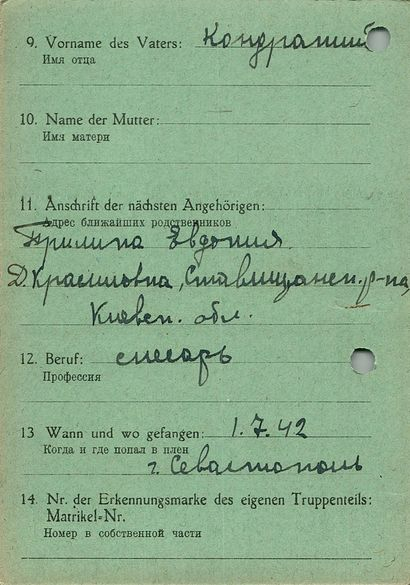 9. Vorname des Vaters: Кондратий
Имя отца
10. Name der Mutter:
Имя матери
11. Anschrift der nächsten Angehörigen:
Адрес ближайших родственников
Прилипа Евдокия.
Д. Красиловка, Ставищанск. р-на,
Киевск. обл.
12. Beruf: слесарь
Профессия
13 Wann und wo gefangen: 1.7.42
Когда и где попал в плен
г. Севастополь
14. Nr. der Erkennungsmarke des eigenen Truppenteils:
Matrikel=Nr.
Номер в собственной части